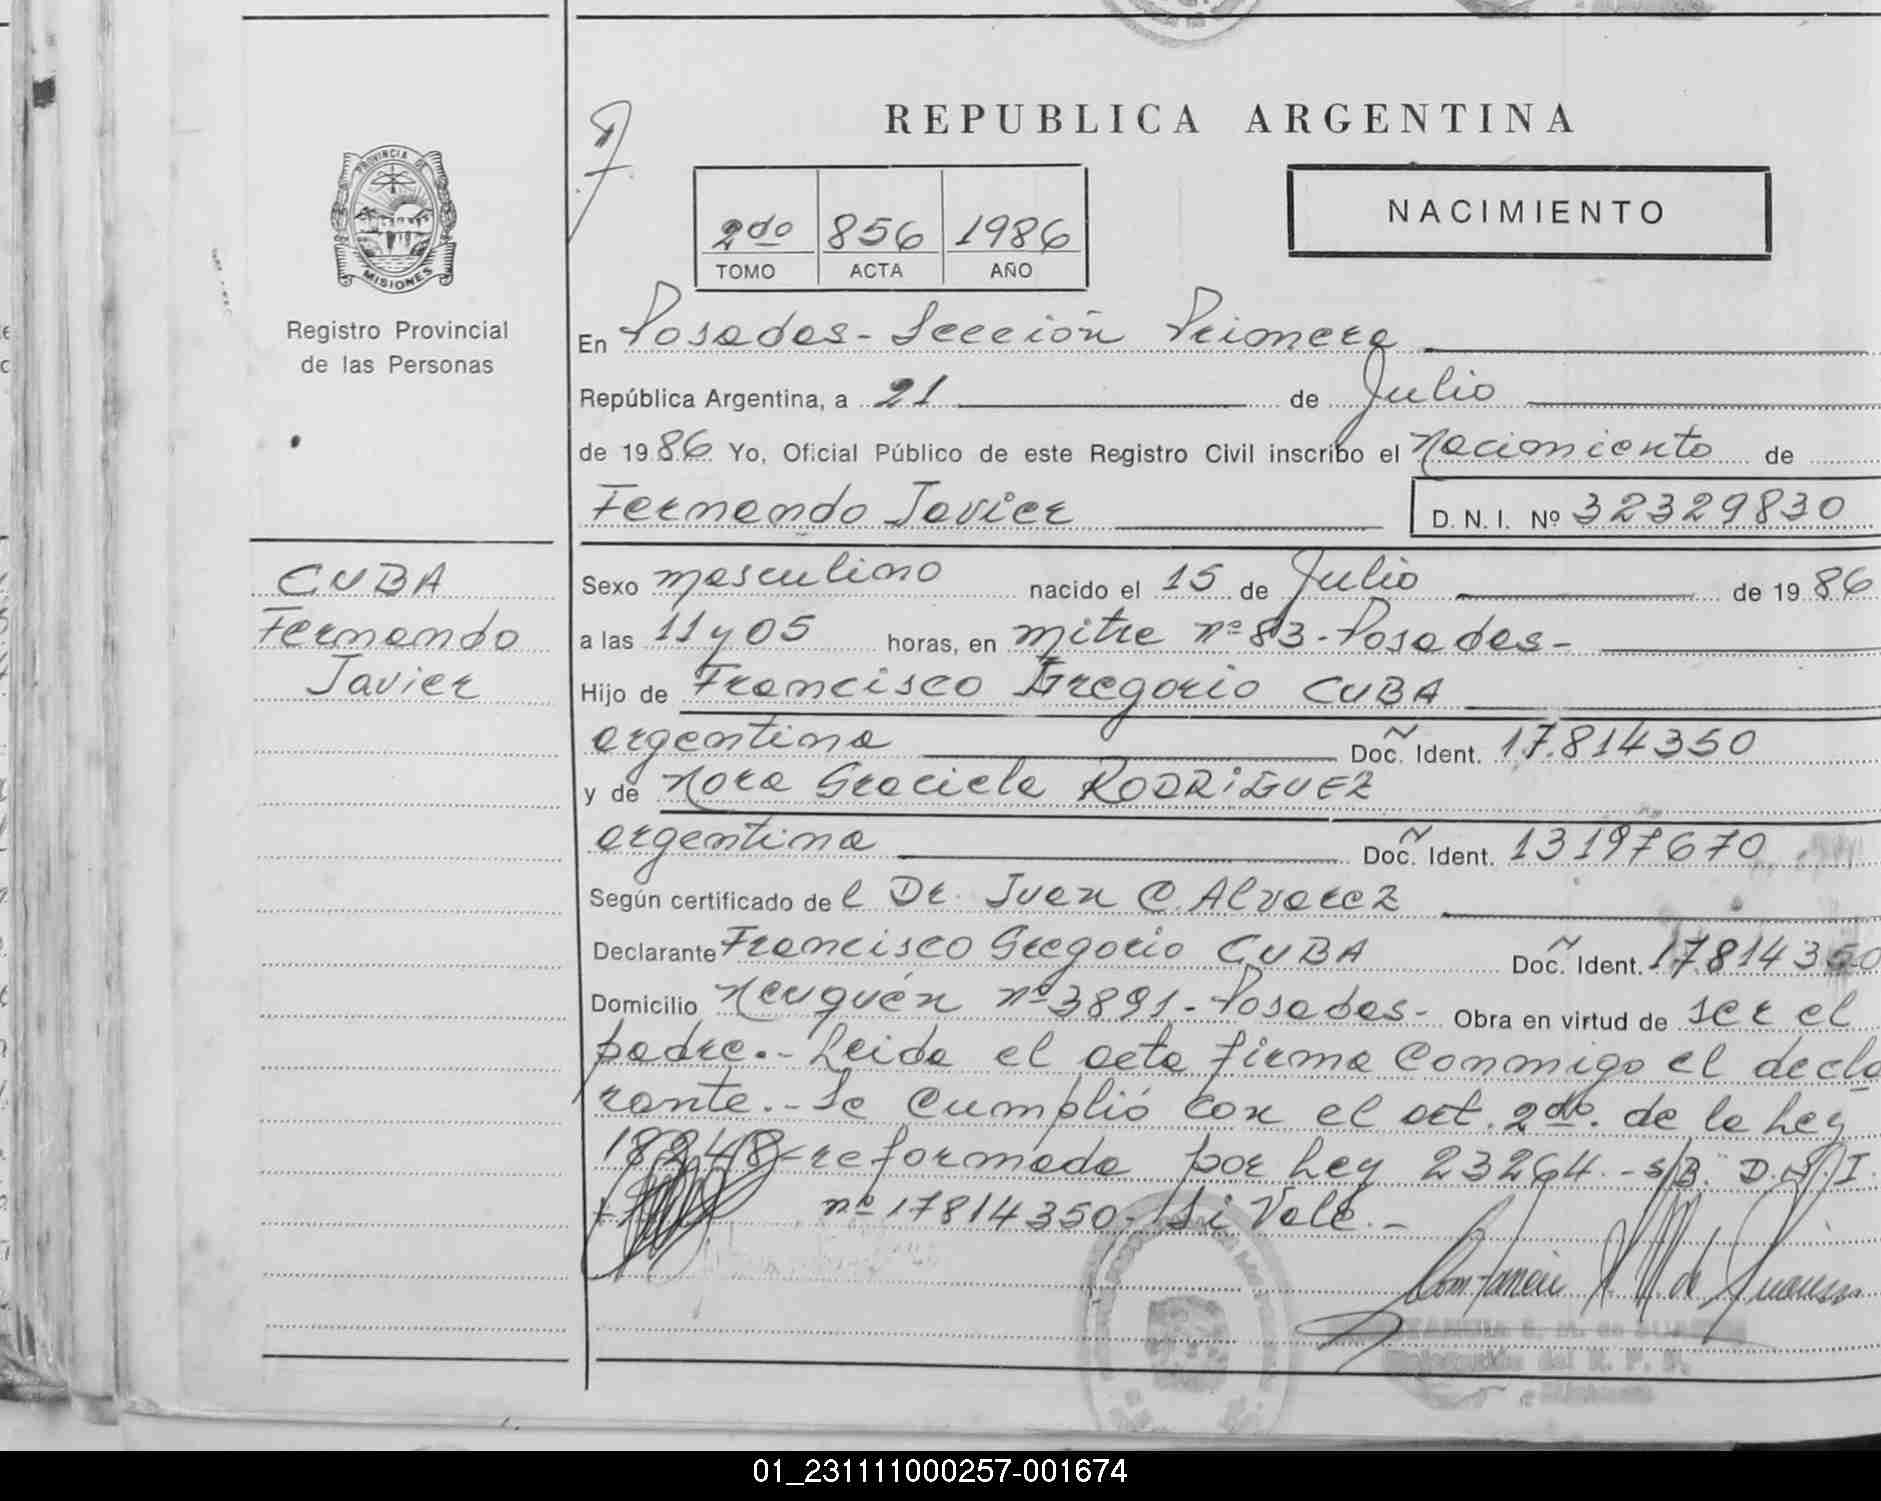 REPUBLICA ARGENTINA
PROVINCIA DE
MISIONES
Registro Provincial
de las Personas
2do 856 1986
TOMO ACTA AÑO
NACIMIENTO
En Posadas - Sección Primera
República Argentina, a 21 de Julio
de 1986 Yo, Oficial Público de este Registro Civil inscribo el Nacimiento de
Fernando Javier D.N.I. Nº 32329830
CUBA
Fernando
Javier
Sexo masculino nacido el 15 de Julio de 1986
a las 11 y 05 horas, en mitre nº 83 - Posadas -
Hijo de Francisco Gregorio CUBA
argentina Doc. Ident. 17.814350
y de Nora Graciela RODRIGUEZ
argentina Doc. Ident. 13197670
Según certificado de l Dr. Juan C. Alvarez
Declarante Francisco Gregorio CUBA Doc. Ident. 17814350
Domicilio Neuquén nº 3891 - Posadas - Obra en virtud de ser el
padre. - Leida el acta firma Conmigo el decla
rante. - Se Cumplió con el art. 2do. de la Ley
18248 - reformada por Ley 23264. - s/B. D.N.I.
nº 17814350 - Si Vale. -
01_231111000257-001674